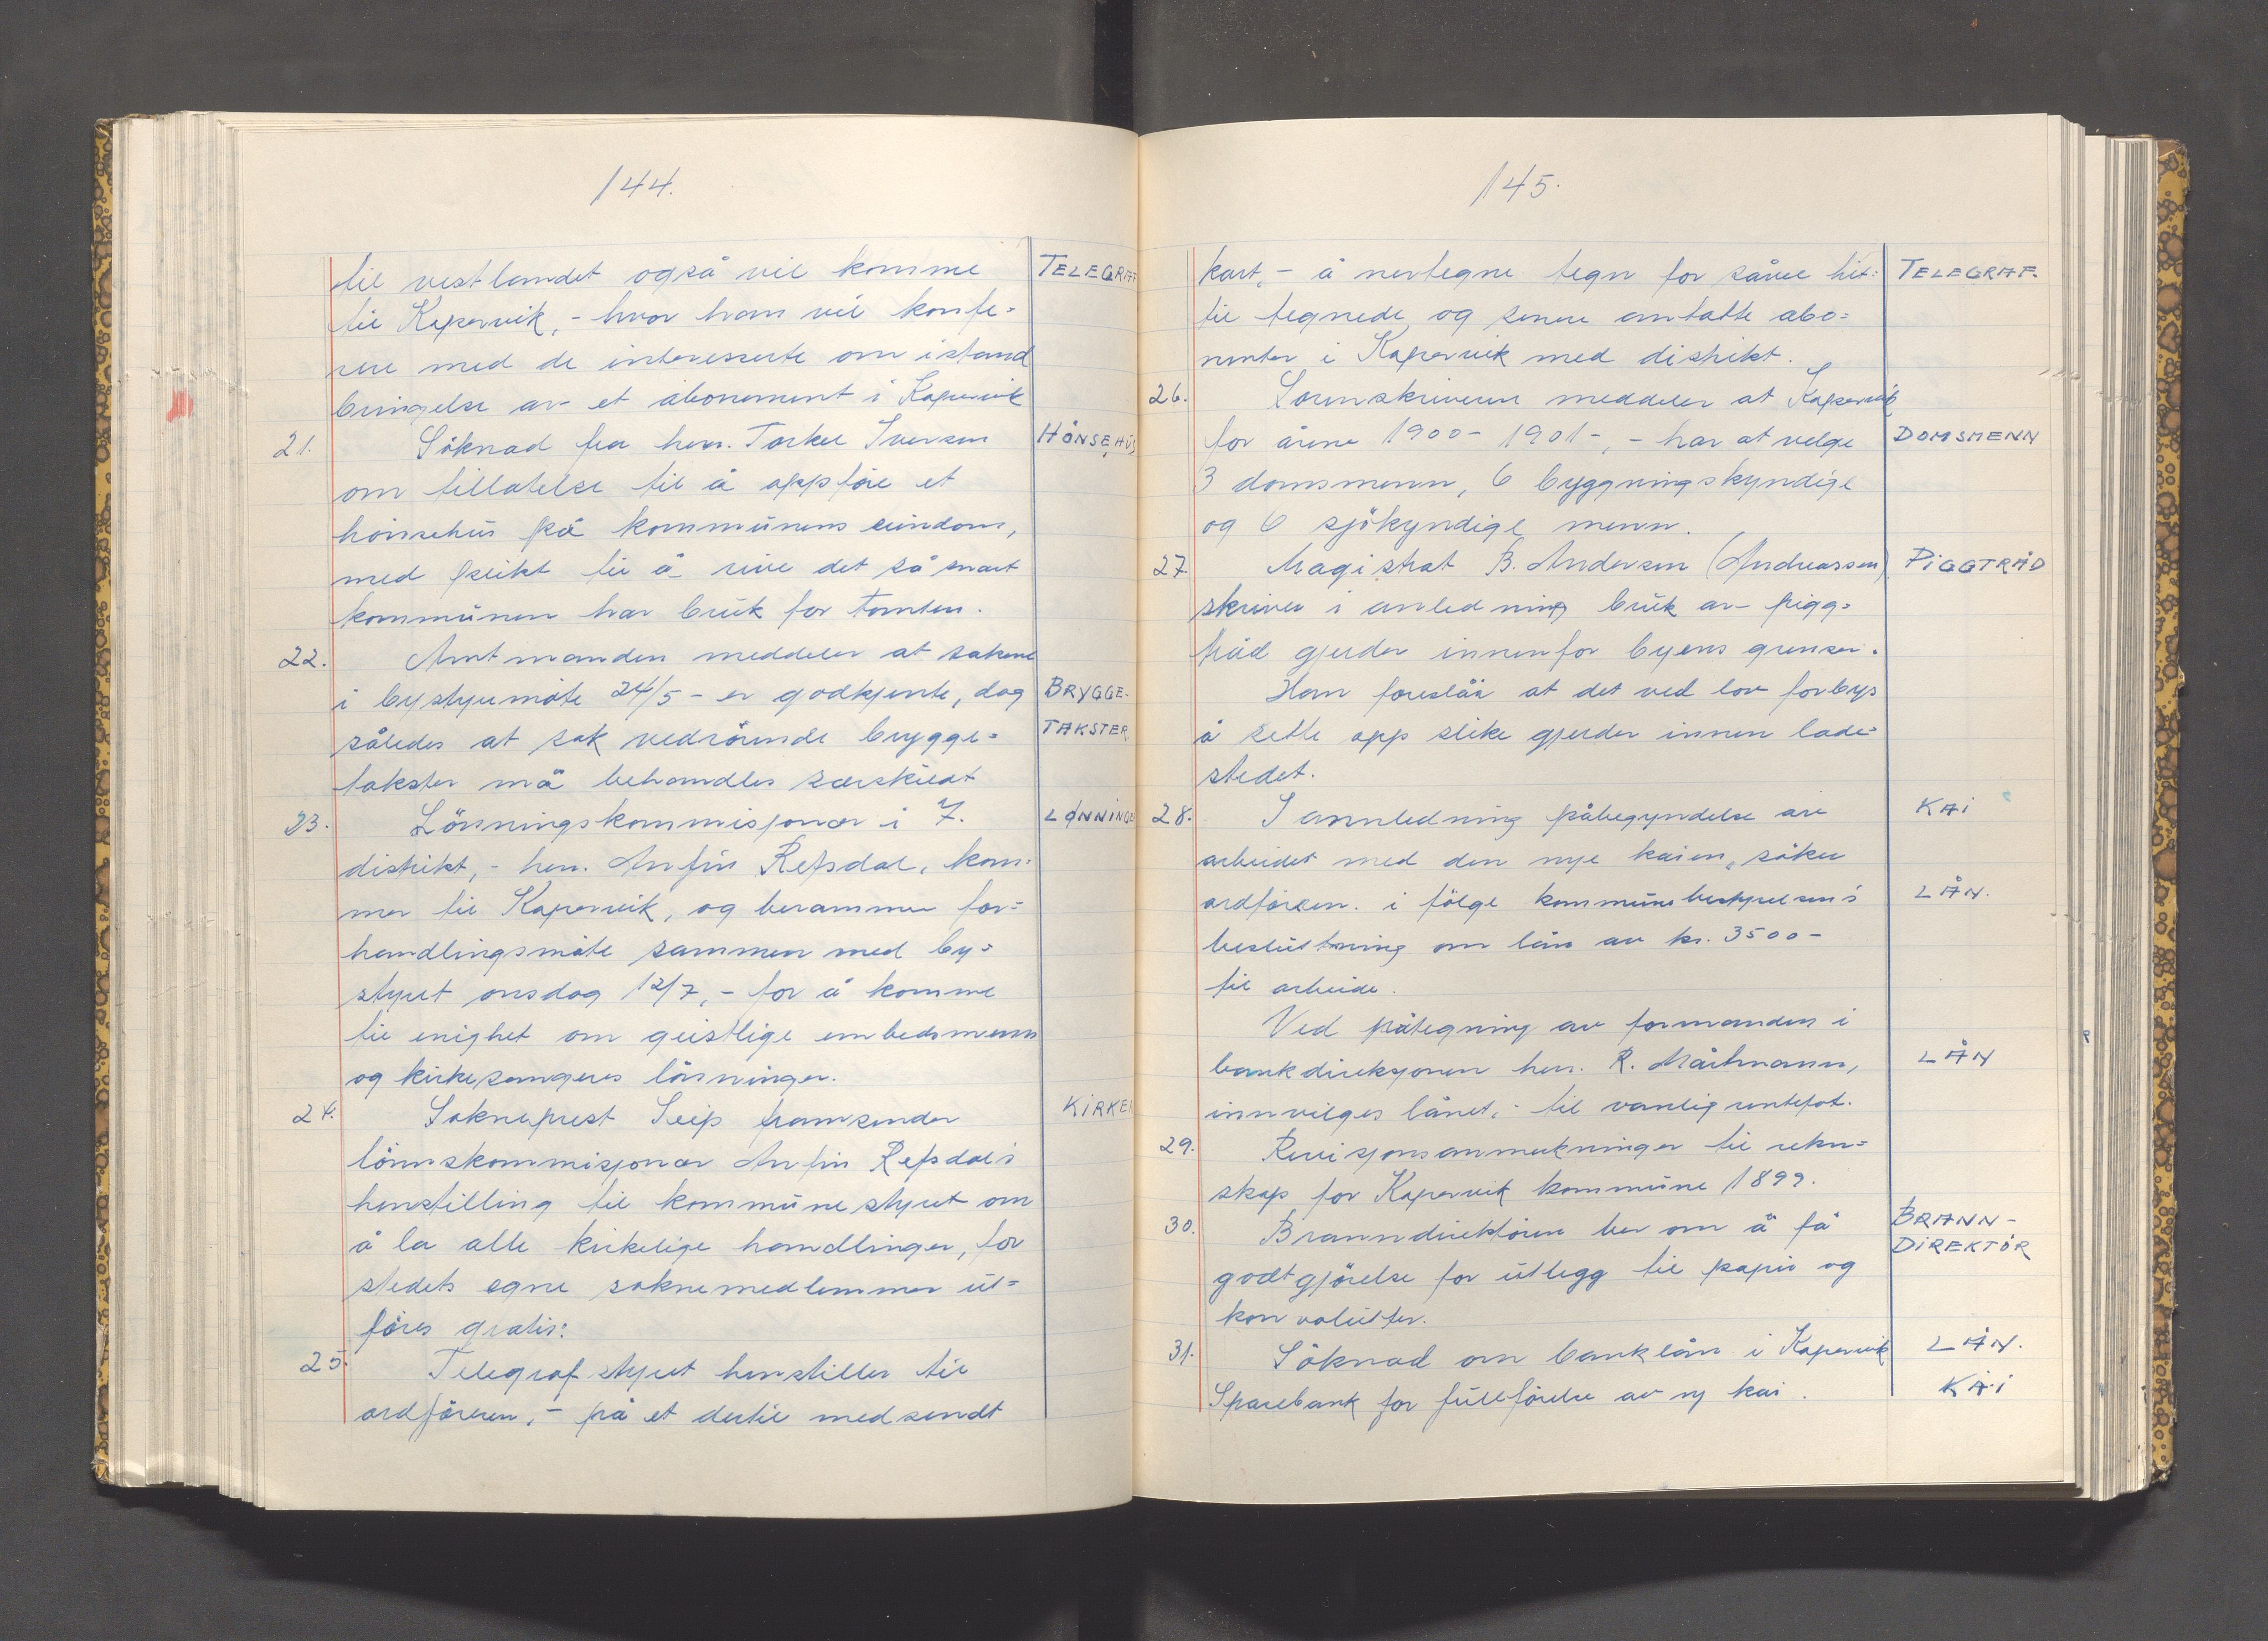 144.
til vestlandet også vil komme TELEGRAF
til Kopervik, - hvor han vil konfe=
rere med de interesserte om istand
bringelse av et abonement i Kopervik
21. Söknad fra herr. Torkel Iversen HÖNSEHUS
om tillatelse til å oppföre et
hönsehus på kommunens eiendom,
med plikt til å rive det så snart
kommunen har bruk for tomten.
22. Amtmanden meddeler at sakene
i bystyremöte 24/5 - er godkjente, dog BRYGGE-
således at sak vedrörende brygge= TAKSTER.
takster må behandles særskildt
23. Lönningskommisjonær i 7. LØNNINGER
distrikt, - herr. Anfin Refsdal, kom=
mer til Kopervik, og berammer for=
handlingsmöte sammen med by=
styret onsdag 12/7, - for å komme
til enighet om geistlige embedsmenn
og kirkesangeres lönninger.
24. Sokneprest Seip framsender KIRKEN
lönnskommisjonær Anfin Refsdal's
henstilling til kommunestyret om
å la alle kirkelige handlinger, for
stedets egne soknemedlemmer ut=
föres gratis:
25. Telegrafstyret henstiller til
ordföreren, - på et dertil medsendt
145.
kart, - å nertegne tegn for såvel hit= TELEGRAF.
til tegnede og senere antatte abo=
nenter i Kopervik med distrikt.
26. Sorenskriveren meddeler at Kopervik
for årene 1900 - 1901 -, - har at velge DOMSMENN
3 domsmenn, 6 byggningskyndige
og 6 sjökyndige menn.
27. Magistrat B. Andersen (Andreassen) PIGGTRÅD
skriver i anledning bruk av pigg=
tråd gjerder innenfor byens grenser.
Han foreslår at det ved lov forbys
å sette opp slike gjerder innen lade=
stedet.
28. I annledning påbegyndelse av KAI
arbeidet med den nye kaien, söker
ordföreren. i fölge kommunebestyrelsen's LÅN.
beslutning om lån av kr. 3500 -
til arbeide.
Ved påtegning av formanden i
bankdireksjonen herr. R. LÅN
innvilges lånet, - til vanlig rentefot.
29. Revisjonsanmerkninger til rekn=
skap for Kopervik kommune 1899.
30. Branndirektören ber om å få BRANN-
DIREKTÖR
godtgjörelse for utlegg til papir og
konvolutter.
31. Söknad om banklån i Kopervik LÅN.
Sparebank for fullförelse av ny kai. KAI